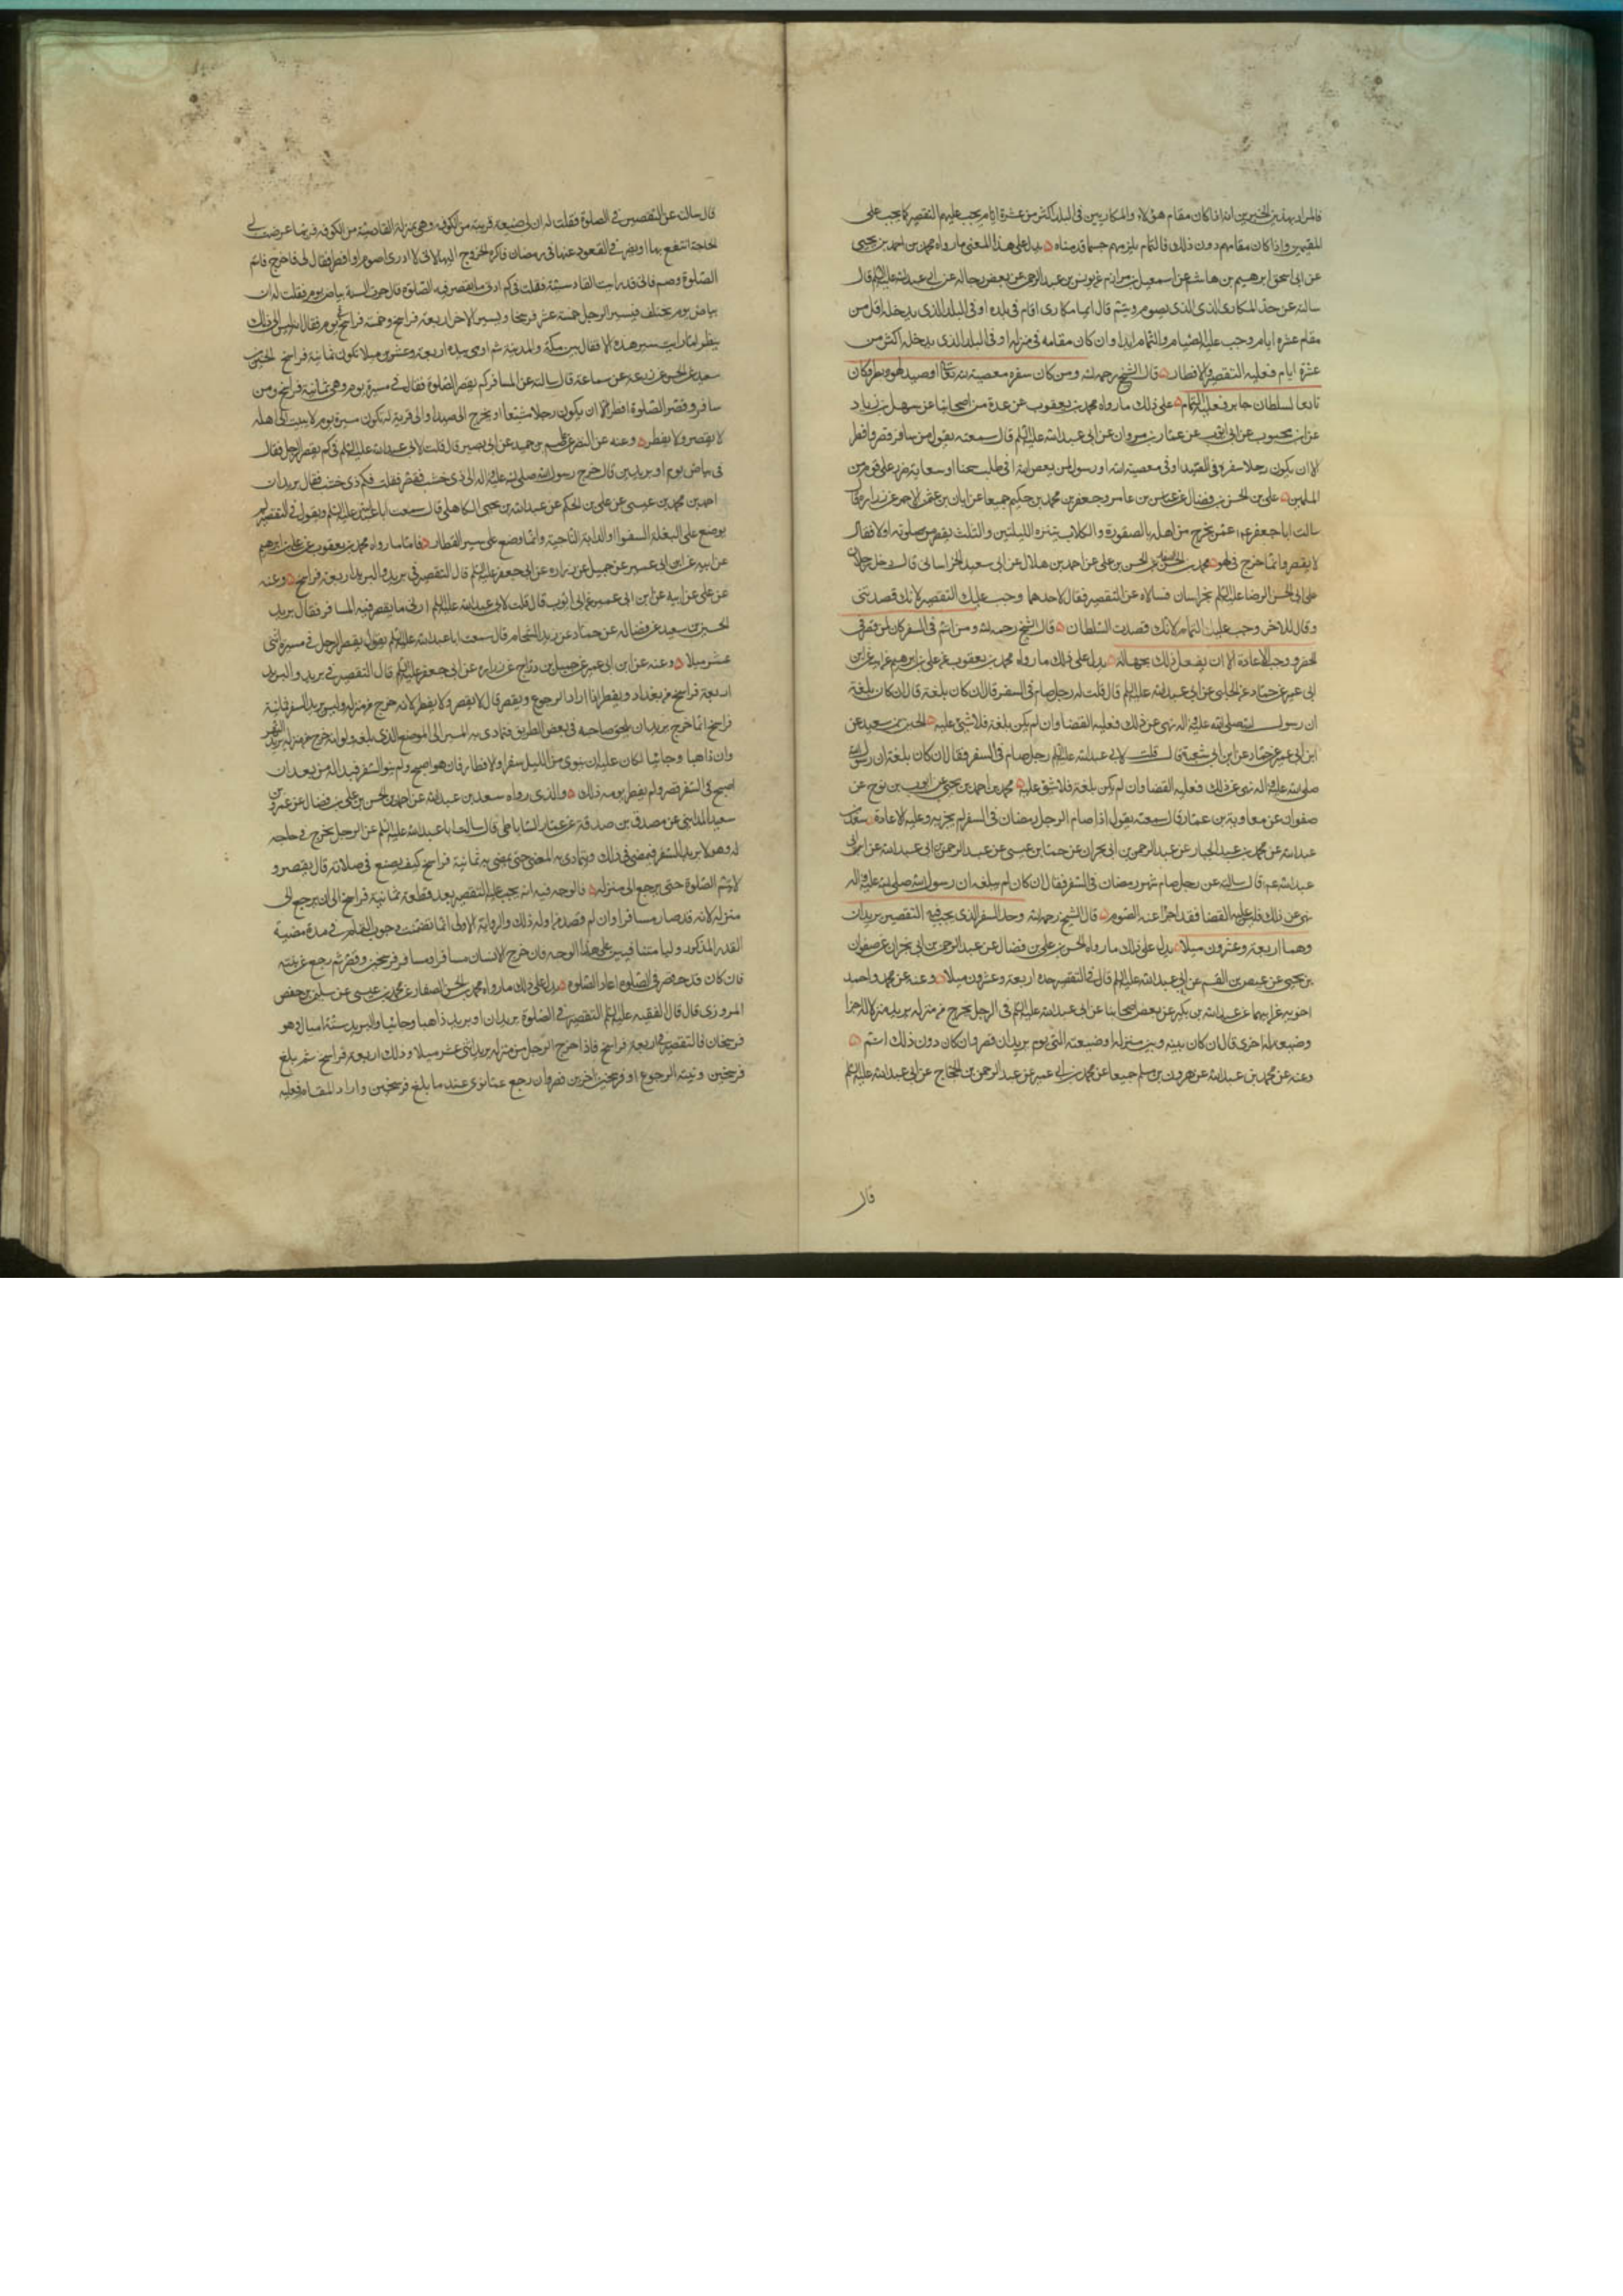 فالمراد بهذين الخبرين انه اذا كان مقام هؤلاء والمكاريين فى البلد اكثر من عشرة ايام يجب عليهم التقصير كما يجب على
المقيمين واذا كان مقامهم دون ذلك فالتمام يلزمهم حسبما قدمناه يدل على هذا المعنى ما رواه محمد بن احمد بن يحيى
عن ابى اسحق ابرهيم بن هاشم عن اسمعيل بن مرار عن يونس بن عبد الرحمن عن بعض رجاله عن ابى عبد الله عليه السلم قال
سالته عن حد المكارى الذى الذى يصوم ويتم قال ايما مكارى اقام فى بلده او فى البلد الذى يدخله اقل من
مقام عشره ايام وجب عليه الصيام والتمام ابدا وان كان مقامه فى منزله او فى البلد الذى يدخله اكثر من
عشرة ايام فعليه التقصير والافطار قال الشيخ رحمه الله ومن كان سفره معصية لله تعالى او صيد لهو وبطر او كان
تابعا لسلطان جاير فعليه التمام على ذلك ما رواه محمد بن يعقوب عن عدة من اصحابنا عن سهل بن زياد
عن ابن محبوب عن ابى ايوب عن عمار بن مروان عن ابى عبد الله عليه السلم قال سمعته يقول من سافر قصر وافطر
الا ان يكون رجلا سفره فى الصيد او فى معصية الله او رسول لمن يعصى الله او فى طلب شحنا او سعاية ضرر على قوم من
المسلمين على بن الحسن بن فضال عن عباس بن عامر وجعفر بن محمد بن حكيم جميعا عن ابان بن عثمن الاحمر عن زراره قال
سالت ابا جعفر ع عمن يخرج من اهله بالصقورة والكلاب يتنزه الليلتين والثلث يقصر من صلوته او لا فقال
لا يقصر وانما خرج فى لهو محمد بن الحسن الصفار عن الحسن بن على عن احمد بن هلال عن ابى سعيد الخراسانى قال دخل رجلان
على ابى الحسن الرضا عليه السلم بخراسان فسالاه عن التقصير فقال لاحدهما وجب عليك التقصير لانك قصدتنى
وقال للاخر وجب عليك التمام لانك قصدت السلطان قال الشيخ رحمه الله ومن اتم فى السفر كان كمن قصر فى
الحضر ووجب الاعادة الا ان يفعل ذلك بجهالة يدل على ذلك ما رواه محمد بن يعقوب عن على بن ابرهيم عن ابيه عن ابن
ابى عمير عن حماد عن الحلبى عن ابى عبد الله عليه السلم قال قلت له رجل صام فى السفر قال ان كان بلغه قال ان كان بلغه
ان رسول الله صلى الله عليه واله نهى عن ذلك فعليه القضا وان لم يكن بلغه فلا شئ عليه الحسين بن سعيد عن
ابن ابى عمير عن حماد عن ابن ابى شعبة قال قلت لابى عبد الله عليه السلم رجل صام فى السفر فقال ان كان بلغه ان رسول الله
صلى الله عليه واله نهى عن ذلك فعليه القضا وان لم يكن بلغه فلا شئ عليه محمد بن احمد بن يحيى عن ايوب بن نوح عن
صفوان عن معاوية بن عمار قال سمعته يقول اذا صام الرجل رمضان فى السفر لم يجزيه وعليه الاعادة سعد بن
عبد الله عن محمد بن عبد الجبار عن عبد الرحمن بن ابى نجران عن حماد بن عيسى عن عبد الرحمن بن ابى عبد الله عن ابى
عبد الله ع قال سالته عن رجل صام شهر رمضان فى السفر فقال ان كان لم يبلغه ان رسول الله صلى الله عليه واله
نهى عن ذلك فليس عليه القضا فقد اجزا عنه الصوم قال الشيخ رحمه الله وحد السفر الذى يجب فيه التقصير بريدان
وهما اربعة وعشرون ميلا يدل على ذلك ما رواه الحسن بن على بن فضال عن عبد الرحمن بن ابى نجران عن صفوان
بن يحيى عن عيص بن القسم عن ابى عبد الله عليه السلم قال فى التقصير حده اربعة وعشرون ميلا وعنه عن محمد واحمد
اخويه عن ابيهما عن عبد الله بن بكير عن بعض اصحابنا عن ابى عبد الله عليه السلم فى الرجل يخرج من منزله يريد منزلا له اخر او
وضيعة له اخرى قال ان كان بينه وبين منزله او ضيعته التى يوم بريدان قصر وان كان دون ذلك اتم
وعنه عن محمد بن عبد الله عن هرون بن مسلم جميعا عن محمد بن ابى عمير عن عبد الرحمن بن الحجاج عن ابى عبد الله عليه السلم
قال
قال سالته عن التقصير فى الصلوة فقلت له ان لى ضيعة قريبة من الكوفه وهى بمنزلة القادسية من الكوفه فربما عرضت لى
الحاجة انتفع بها او يضرنى القعود عنها فى رمضان فاكره الخروج اليها لانى لا ادرى اصوم او افطر فقال لى فاخرج فاتم
الصلوة وصم فانى قد رايت القادسية فقلت فى كم ادنى ما يقصر فيه الصلوة قال جرت السنة بياض يوم فقلت له ان
بياض يوم يختلف فيسير الرجل خمسة عشر فرسخا ويسير الاخر اربعة فراسخ وخمسة فراسخ فى يوم فقال انه ليس الى ذلك
ينظر اما رايت سير هذه الاثقال بين مكة والمدينة ثم اومى بيده اربعة وعشرين ميلا تكون ثمانية فراسخ الحسين بن
سعيد عن الحسن عن زرعه عن سماعة قال سالته عن المسافر كم يقصر الصلوة فقال فى مسيرة يوم وهى ثمانية فراسخ ومن
سافر وقصر الصلوة افطر الا ان يكون رجلا مشيعا او يخرج الى صيد او الى قرية له يكون مسيرة يوم لا يبيت الى اهله
لا يقصر ولا يفطر وعنه عن النضر عن عاصم بن حميد عن ابى بصير قال قلت لابى عبد الله عليه السلم فى كم يقصر الرجل فقال
فى بياض يوم او بريدين قال خرج رسول الله صلى الله عليه واله الى ذى خشب فقصر فقلت فكم ذى خشب فقال بريدان
احمد بن محمد بن عيسى عن على بن الحكم عن عبد الله بن يحيى الكاهلى قال سمعت ابا عبد الله عليه السلم ويقول فى التقصير لم
يوضع على البغلة السفوا او الدابة الناجية وانما وضع على سير القطار فاما ما رواه محمد بن يعقوب عن على بن ابرهيم
عن ابيه عن ابن ابى عمير عن جميل عن زراره عن ابى جعفر عليه السلم قال التقصير فى بريد والبريد اربعة فراسخ وعنه
عن على عن ابيه عن ابن ابى عمير عن ابى ايوب قال قلت لابى عبد الله عليه السلم ادنى ما يقصر فيه المسافر فقال بريد
الحسين بن سعيد عن فضاله عن حماد عن زيد الشحام قال سمعت ابا عبد الله عليه السلم يقول يقصر الرجل فى مسيرة اثنى
عشر ميلا وعنه عن ابن ابى عمير عن جميل بن دراج عن زراره عن ابى جعفر عليه السلم قال التقصير فى بريد والبريد
اربعة فراسخ من بغداد ويفطر اذا اراد الرجوع ويقصر قال لا يقصر ولا يفطر لانه خرج من منزله وليس يريد السفر ثمانية
فراسخ انما خرج يريد ان يلحق صاحبه فى بعض الطريق فتمادى به المسير الى الموضع الذى بلغه ولو انه خرج من منزله يريد النهروان
وان ذاهبا وجائيا لكان عليه ان ينوى من الليل سفرا والافطار فان هو اصبح ولم ينو السفر فبدا له من بعد ان
اصبح فى السفر قصر ولم يفطر يومه ذلك والذى رواه سعد بن عبد الله عن احمد بن الحسن بن على بن فضال عن عمرو بن
سعيد المداينى عن مصدق بن صدقة عن عمار الساباطى قال سالت ابا عبد الله عليه السلم عن الرجل يخرج فى حاجه
له وهو لا يريد السفر فيمضى فى ذلك ويتمادى به المضى حتى يمضى به ثمانية فراسخ كيف يصنع فى صلاته قال يقصر و
لا يتم الصلوة حتى يرجع الى منزله فالوجه فيه انه يجب عليه التقصير بعد قطعه ثمانية فراسخ الى ان يرجع الى
منزله لانه قد صار مسافرا وان لم قصد من اوله ذلك والرواية الاولى انما تضمنت وجوب التمام فى مدة مضيه
القدر المذكور وليسا متنافيين على هذا الوجه فان خرج الانسان مسافرا ومسافر فرسخين وقصر ثم رجع عن نيته
فان كان قد قصر فى الصلوة اعاد الصلوة يدل على ذلك ما رواه محمد بن الحسن الصفار عن محمد بن عيسى عن سليمن بن حفص
المروزى قال قال الفقيه عليه السلم التقصير فى الصلوة بريدان او بريد ذاهبا وجائيا والبريد ستة اميال وهو
فرسخان فالتقصير فى اربعة فراسخ فاذا خرج الرجل من منزله يريد اثنى عشر ميلا وذلك اربعة فراسخ ثم بلغ
فرسخين ونيته الرجوع او فرسخين اخرين قصر وان رجع عما نوى عند ما بلغ فرسخين واراد المقام فعليه